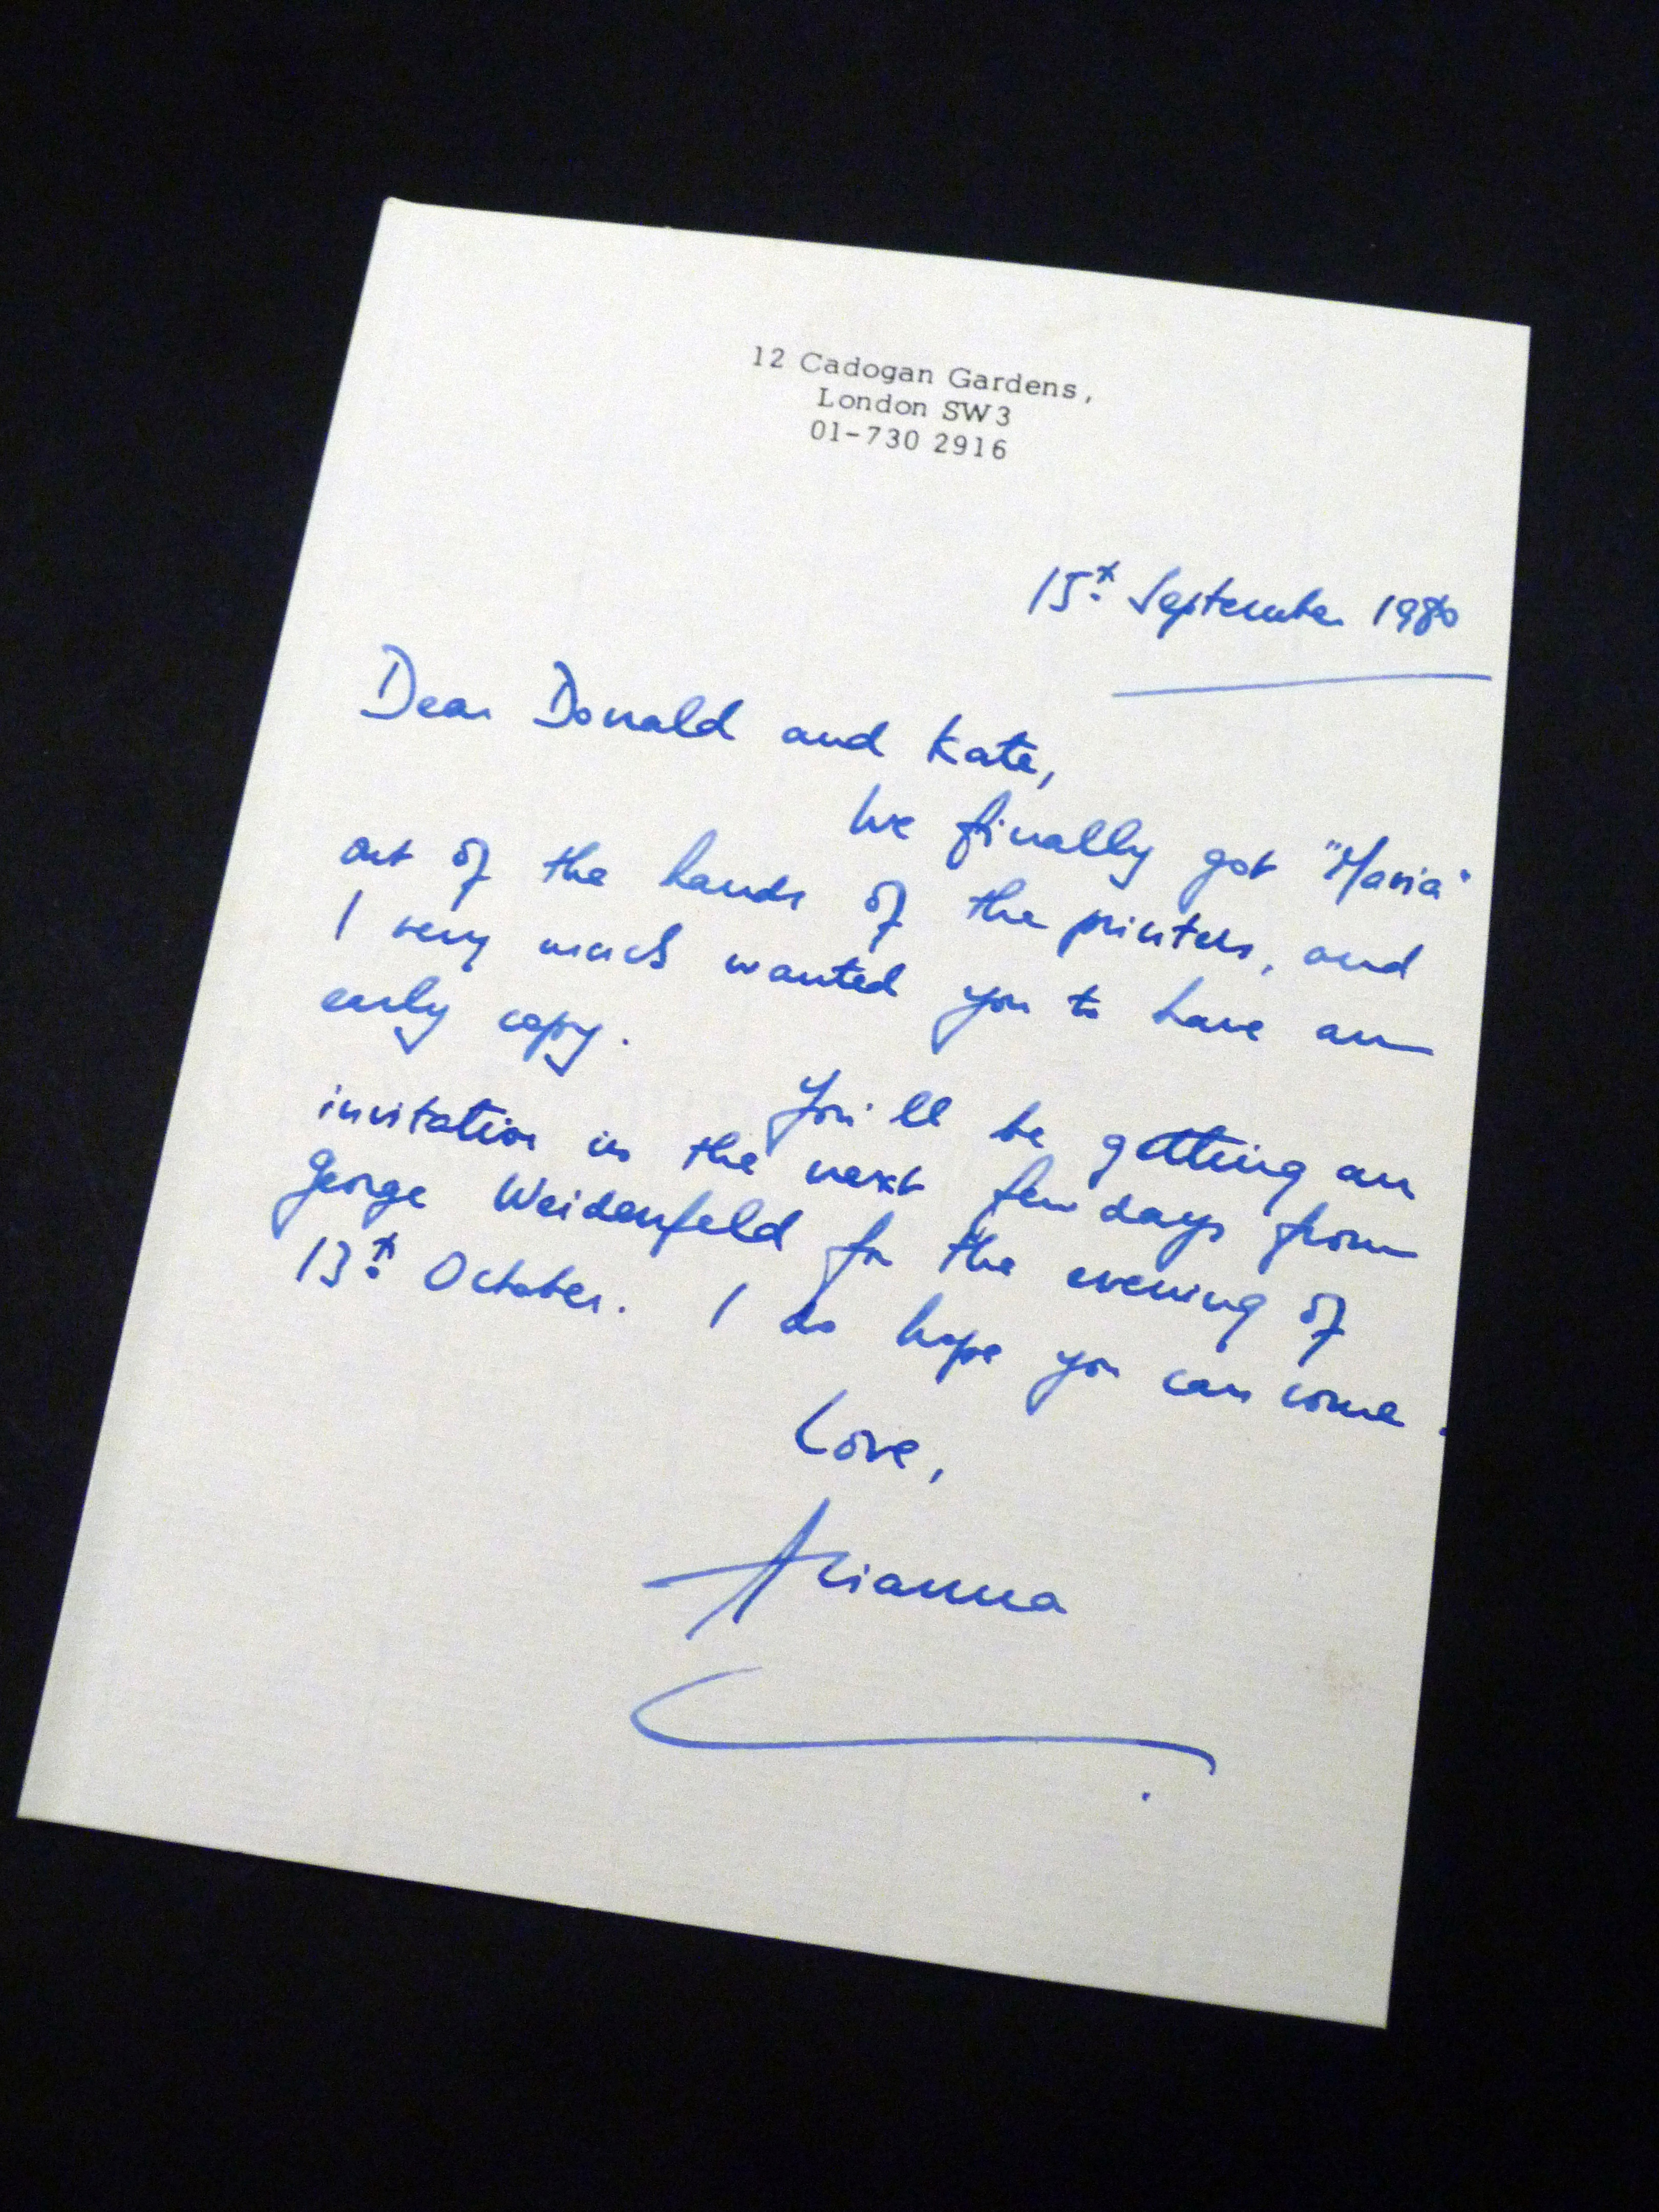 12 Cadogan Gardens,
London SW3
01-730 2916
15th September 1980
Dear Donald and Kate,
We finally got "Maria"
out of the hands of the printers, and
I very much wanted you to have an
early copy.
You'll be getting an
invitation in the next few days from
George Weidenfeld for the evening of
13th October. I do hope you can come.
Love,
Arianna